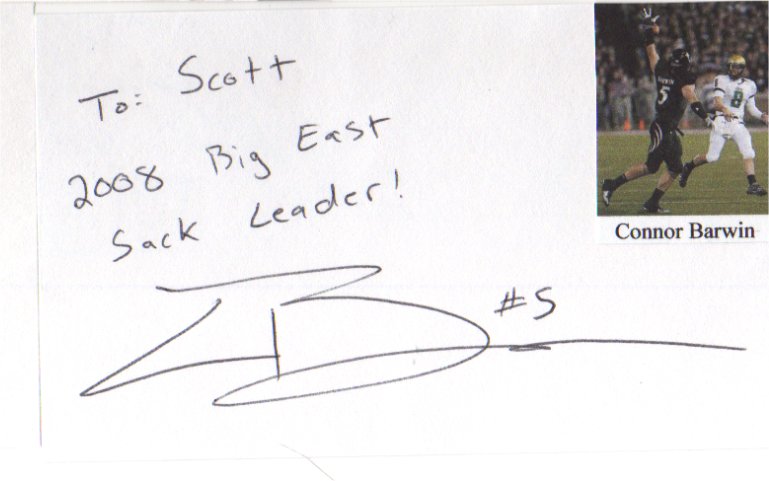 To: Scott
2008 Big East
Sack Leader!
#5
Connor Barwin
5
8